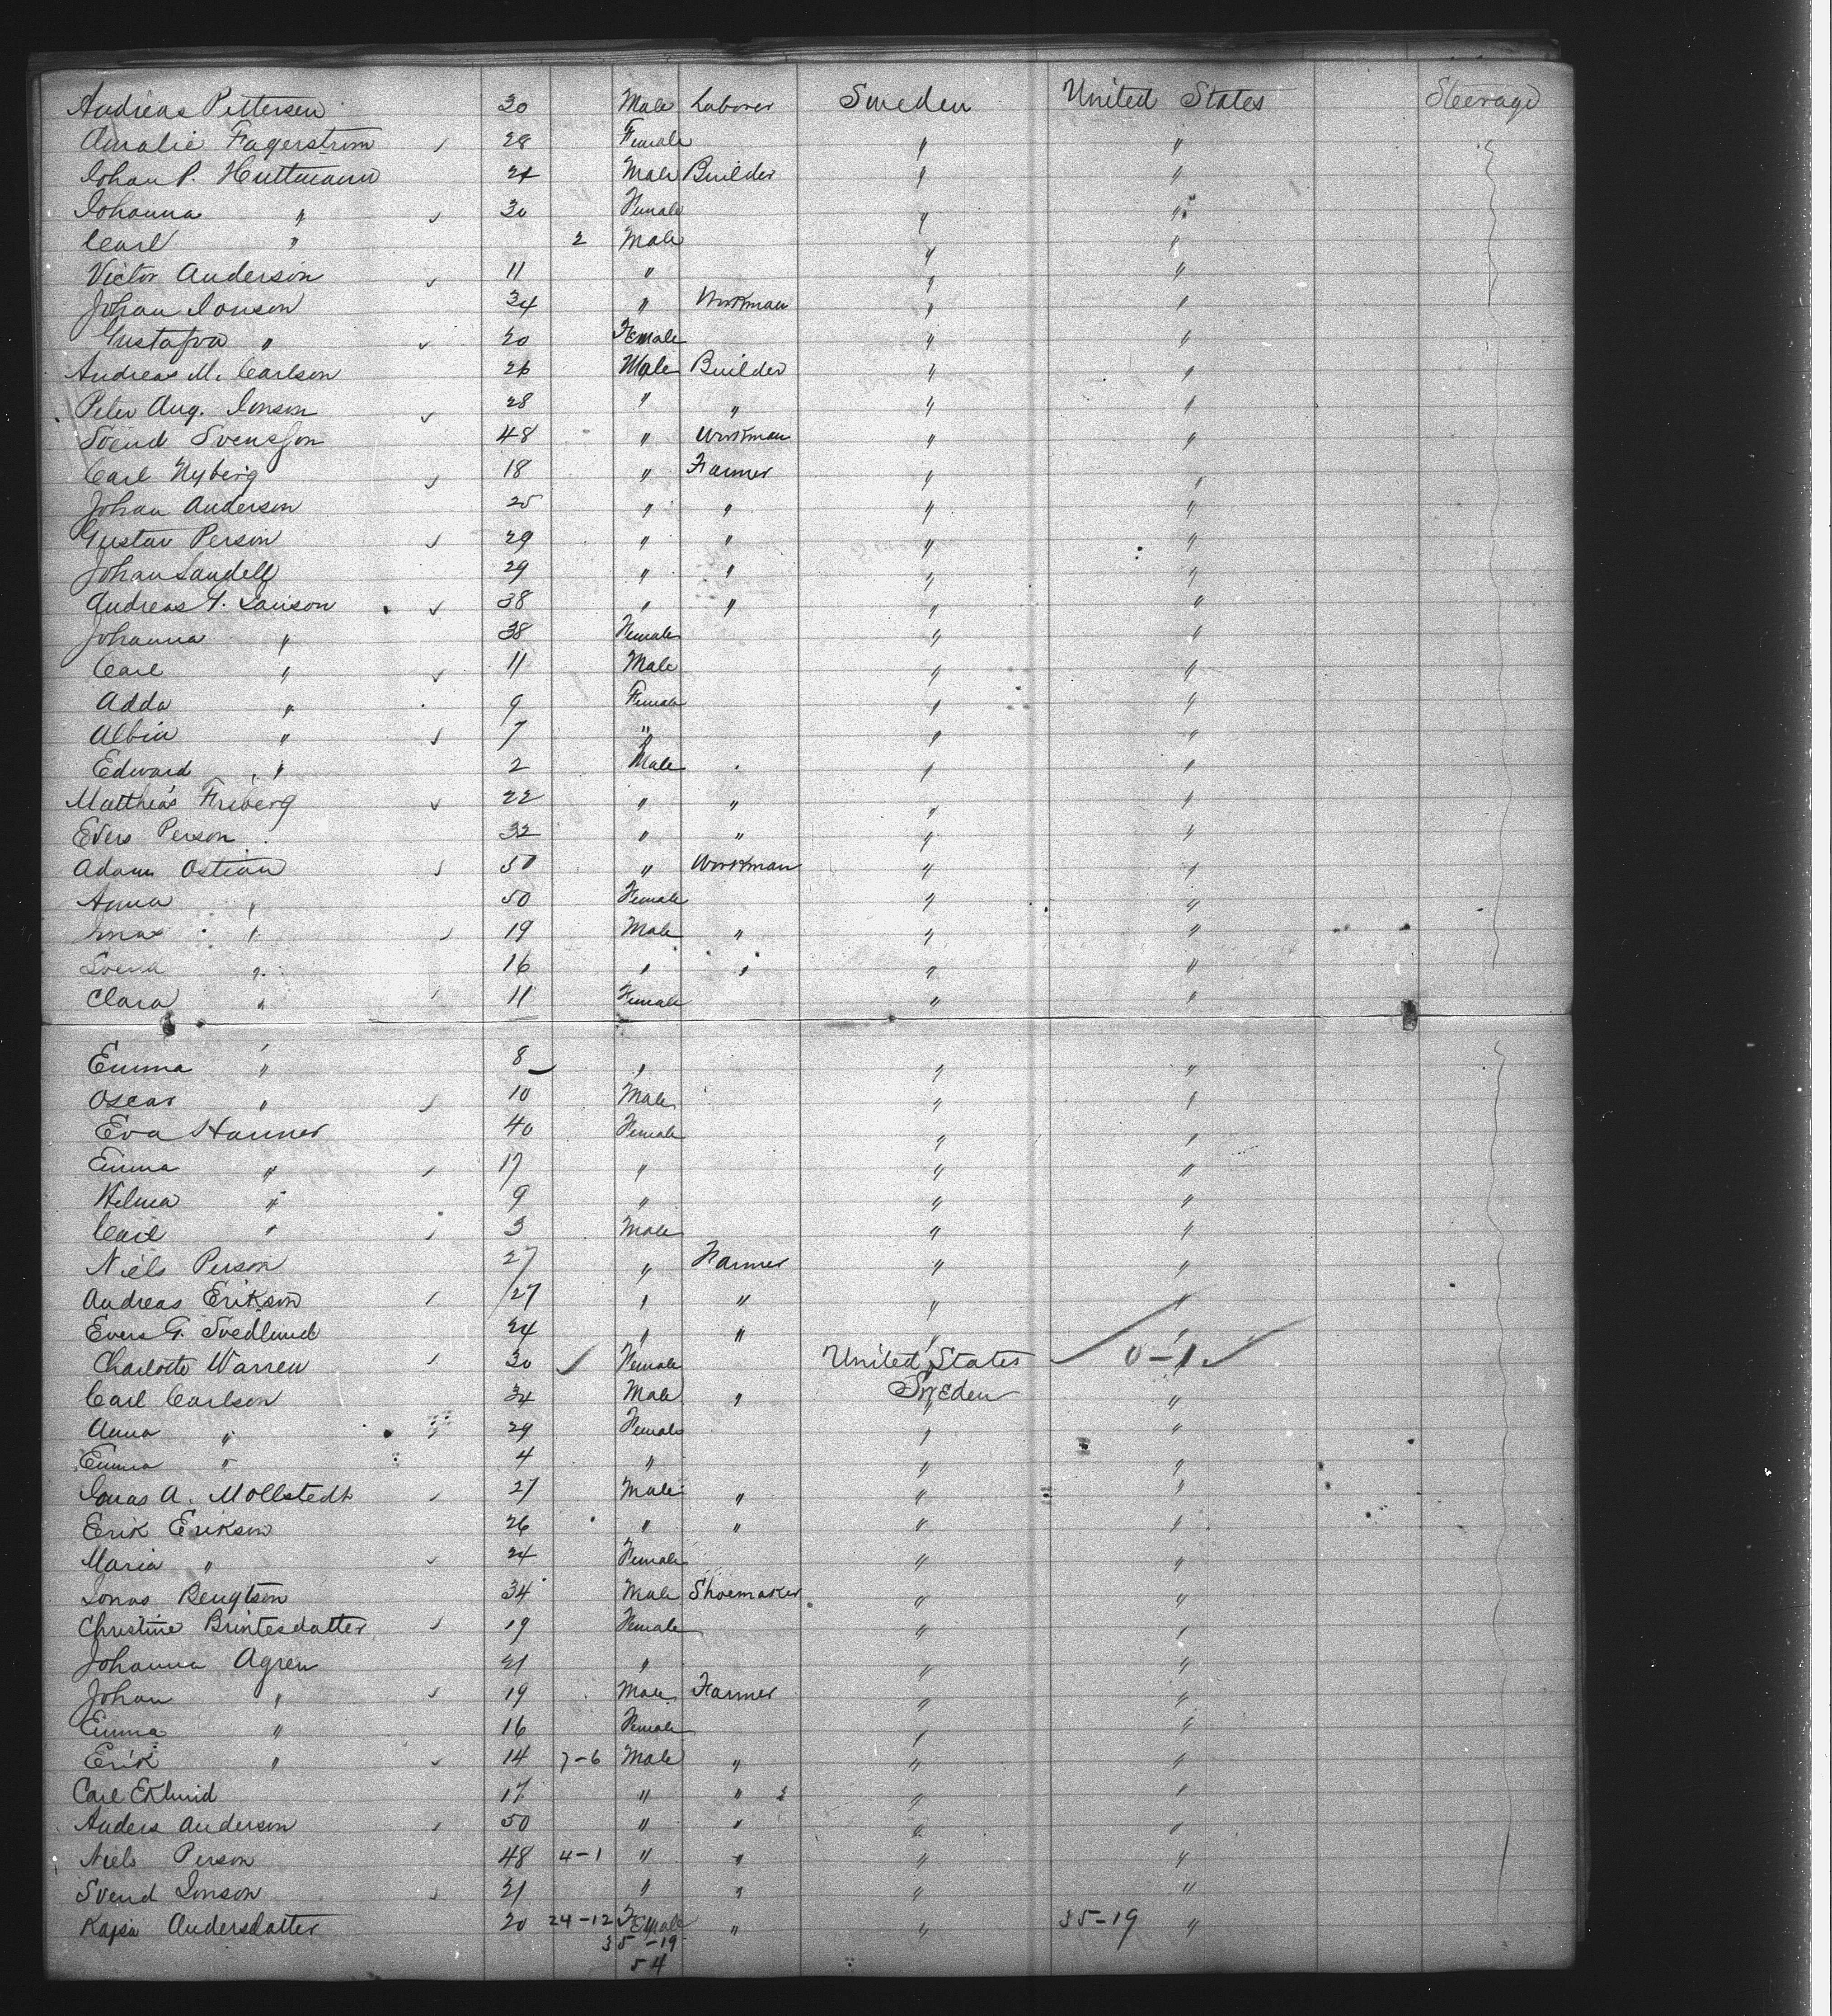 Andreas Pettersen 30 Male Laborer Sweden United States Steerage
Amalie Fagerstrom 28 Female " "
Johan P. Huttmann 24 Male Builder " "
Johanna " 30 Female " "
Carl " 2 Male " "
Victor Anderson 11 " " "
Johan Jonson 34 " Workman " "
Gustafva " 20 Female " "
Andreas M. Carlson 26 Male Builder " "
Peter Aug. Jonson 28 " " " "
Svend Svensson 48 " Workman " "
Carl Nyberg 18 " Farmer " "
Johan Anderson 25 " " " "
Gustav Person 29 " " " "
Johan Sandell 29 " " " "
Andreas G. 38 " " " "
Johanna " 38 Female " "
Carl " 11 Male " "
Adda " 9 Female " "
Albin " 7 " " "
Edward " 2 Male " "
Matthias Friberg 22 " " " "
Evers Person 32 " " " "
Adam Ostian 50 " Workman " "
Anna " 50 Female " "
" 19 Male " " "
Svend " 16 " " " "
Clara " 11 Female " "
Emma " 8 " " "
Oscar " 10 Male " "
Eva Hanner 40 Female " "
Emma " 17 " " "
Hilma " 9 " " "
Carl " 3 Male " "
Niels Person 27 " Farmer " "
Andreas Erikson 27 " " " "
Evers G. Svedlund 24 " " " "
Charlotte Warren 30 Female United States 0-1
Carl Carlson 34 Male " Sweden "
Anna " 29 Female " "
Emma " 4 " " "
Jonas A. Mollstedt 27 Male " " "
Erik Erikson 26 " " " "
Maria " 24 Female " "
Jonas Bengtson 34 Male Shoemaker " "
Christine Brintesdatter 19 Female " "
Johanna Agren 21 " " "
Johan " 19 Male Farmer " "
Emma " 16 Female " "
Erik " 14 7-6 Male " " "
Carl Eklund 17 " " " "
Anders Anderson 50 " " " "
Niels Person 48 4-1 " " " "
Svend Jonson 21 " " " "
Kajsa Andersdatter 20 24-12 Female " " 35-19 "
35-19
54